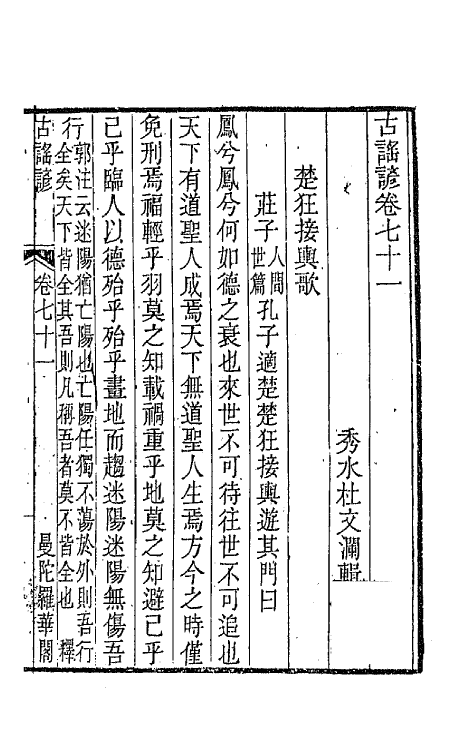 古謡諺卷七十一
秀水杜文瀾輯
楚狂接輿歌
莊子人間世篇孔子適楚楚狂接輿遊其門曰
鳳兮鳳兮何如德之衰也來世不可待往世不可追也
天下有道聖人成焉天下無道聖人生焉方今之時僅
免刑焉福輕乎羽莫之知載禍重乎地莫之知避已乎
已乎臨人以德殆乎殆乎畫地而趨迷陽迷陽無傷吾
行郭注云迷陽猶亡陽也亡陽任獨不蕩於外則吾行全矣天下皆全其吾則凡稱吾者莫不皆全也　釋
古謡諺　卷七十一　曼陀羅華閣